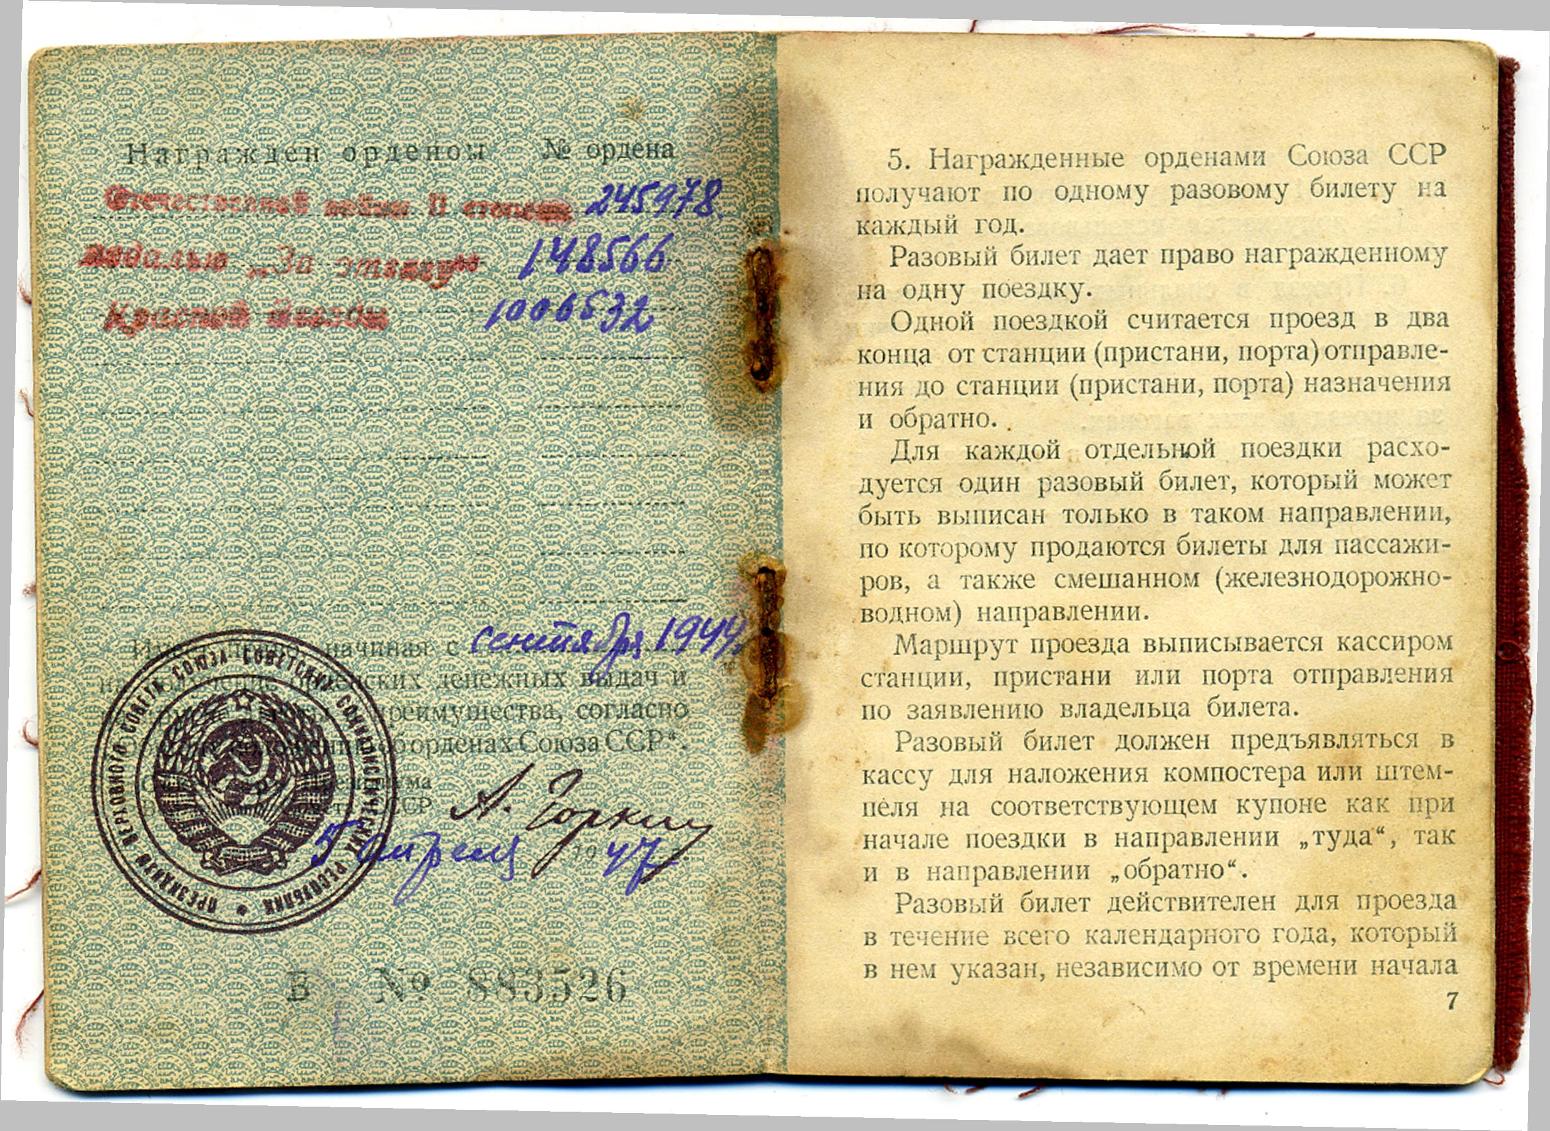 Награжден орденом № ордена
Отечественной войны II степени 245978.
медалью „За отвагу“ 148566
Красной Звезды 1006532
начиная с сентября 1944
денежных выдач и
преимущества, согласно
орденах Союза ССР“.
ма
ССР А. Горкин
5 апреля 1947
ПРЕЗИДИУМ ВЕРХОВНОГО СОВЕТА СОЮЗА СОВЕТСКИХ СОЦИАЛИСТИЧЕСКИХ РЕСПУБЛИК
Б № 883526
5. Награжденные орденами Союза ССР
получают по одному разовому билету на
каждый год.
Разовый билет дает право награжденному
на одну поездку.
Одной поездкой считается проезд в два
конца от станции (пристани, порта) отправле-
ния до станции (пристани, порта) назначения
и обратно.
Для каждой отдельной поездки расхо-
дуется один разовый билет, который может
быть выписан только в таком направлении,
по которому продаются билеты для пассажи-
ров, а также смешанном (железнодорожно-
водном) направлении.
Маршрут проезда выписывается кассиром
станции, пристани или порта отправления
по заявлению владельца билета.
Разовый билет должен предъявляться в
кассу для наложения компостера или штем-
пеля на соответствующем купоне как при
начале поездки в направлении „туда“, так
и в направлении „обратно“.
Разовый билет действителен для проезда
в течение всего календарного года, который
в нем указан, независимо от времени начала
7